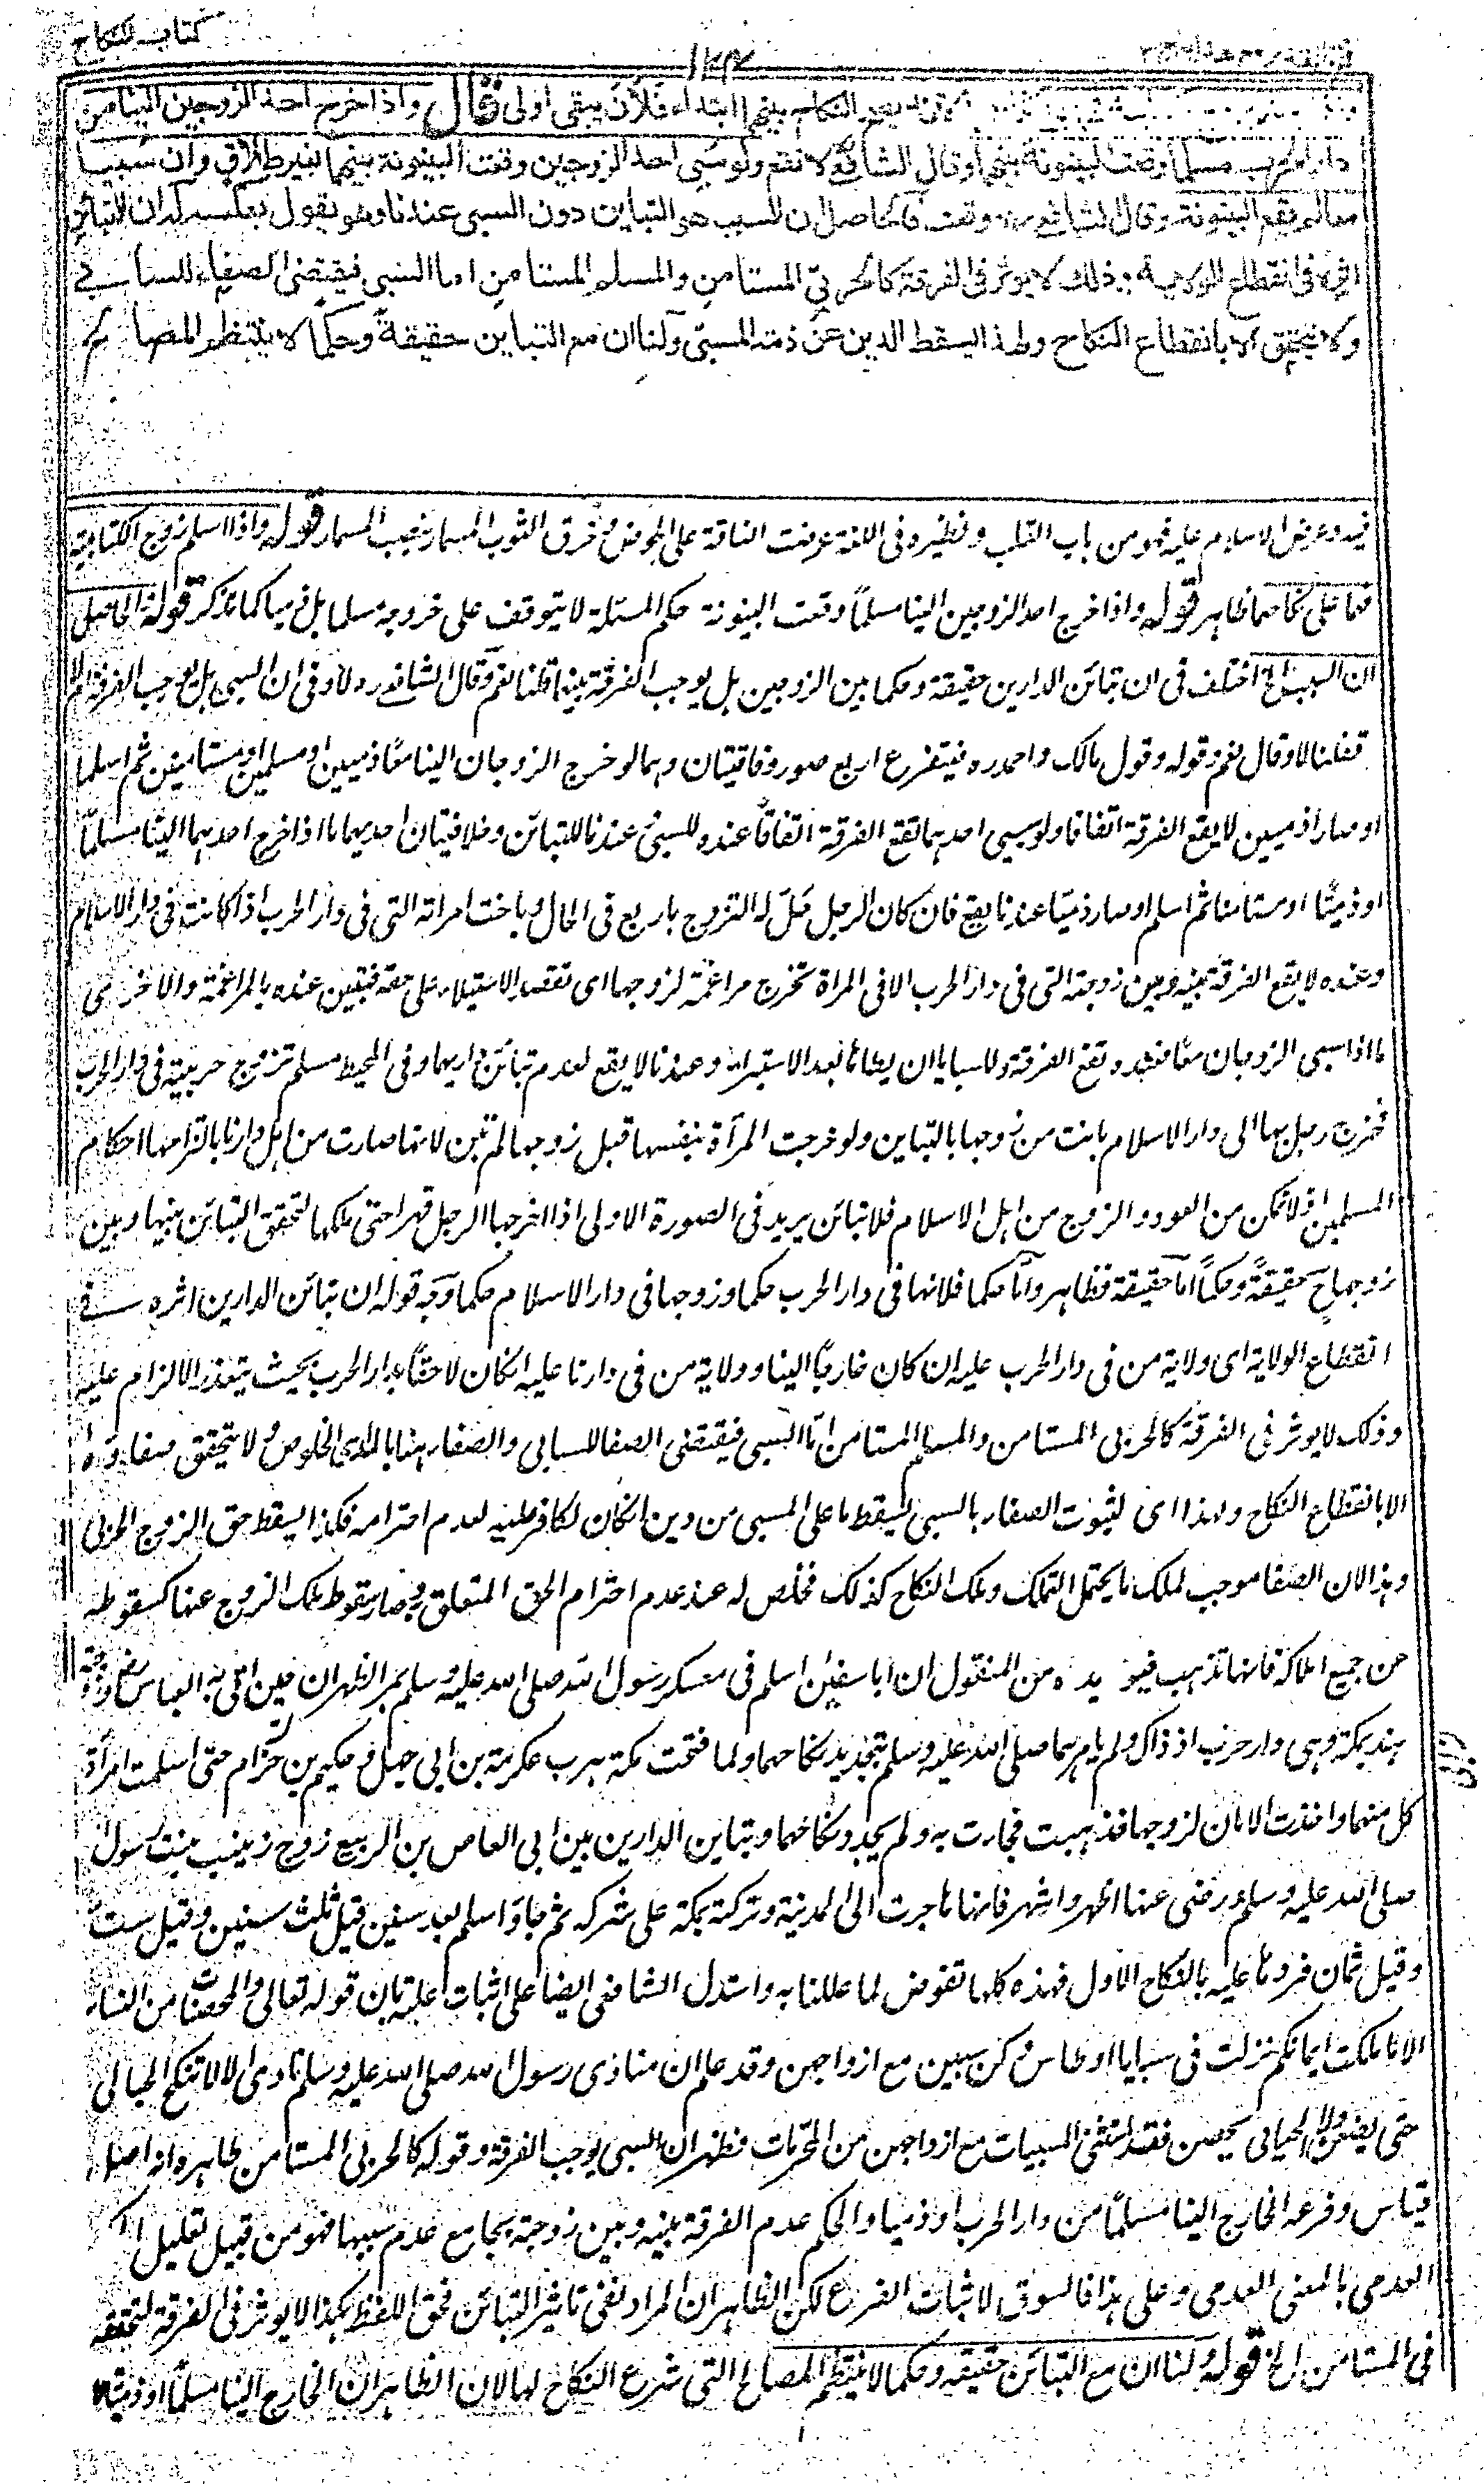 كتاب النكاح
١٢٤٧
يصح النكاح بينهما ابتداء فلأن يبقى اولى قال واذا خرج احد الزوجين الينا من
دار الحرب مسلما وقعت البينونة بينهما وقال الشافعي لا تقع ولو سبى احد الزوجين وقعت البينونة بينهما بغير طلاق وان سبيا
معا لم تقع البينونة وقال الشافعي ره وقعت فالحاصل ان السبب هو التباين دون السبى عندنا وهو يقول بعكسه له ان للتباين
اثره فى انقطاع الولاية وذلك لا يوثر فى الفرقة كالحربى المستامن والمسلم المستامن اما السبى فيقتضى الصفاء للسابى
ولا يتحقق الا بانقطاع النكاح ولهذا يسقط الدين عن ذمة المسبى ولنا ان مع التباين حقيقة وحكما لا ينتظم المصالح
فيه وعرض الاسلام عليه فهو من باب القلب ونظيره فى اللغة عرضت الناقة على الحوض وخرق الثوب المسمار بنصب المسمار قوله واذا اسلم زوج الكتابية
فهما على نكاحهما ظاهر قوله واذا خرج احد الزوجين الينا مسلماً وقعت البينونة حكم المسئلة لا يتوقف على خروجه مسلما بل ذميا كما نذكر قوله فالحاصل
ان السبب الخ اختلف فى ان تبائن الدارين حقيقة وحكما بين الزوجين بل يوجب الفرقة بينهما قلنا نعم وقال الشافعى ره لا وفى ان السبى بل يوجب الفرقة ام لا
فقلنا لا وقال نعم وقوله وقول مالك واحمد ره فيتفرع اربع صور وفاقيتان وهما لو خرج الزوجان الينا معًا ذميين او مسلمين او مستامنين ثم اسلما
او صارا ذميين لا يقع الفرقة اتفاقا ولو سبى احدهما تقع الفرقة اتفاقًا عنده للسبى وعندنا للتبائن وخلافيتان احديهما ما اذا خرج احدهما الينا مسلماً
او ذميًا او مستامنا ثم اسلم او صار ذميًا عندنا يقع فان كان الرجل حل له التزوج باربع فى الحال وباخت امراته التى فى دار الحرب اذا كانت فى دار الاسلام
وعنده لا يقع الفرقة بينه وبين زوجته التى فى دار الحرب الا فى المراة تخرج مراغمة لزوجها اى تقصد الاستيلاء على حقه فتبين عنده بالمراغمة والاخرى
ما اذا سبى الزوجان معًا فعنده تقع الفرقة فللسابى ان يطأها بعد الاستبراء وعندنا لا يقع لعدم تبائن داريهما وفى المحيط مسلم تزوج حربية فى دار الحرب
فخرج رجل بها الى دار الاسلام بانت من زوجها بالتباين ولو خرجت المرأة بنفسها قبل زوجها لم تبن لانها صارت من اهل دارنا بالتزامها احكام
المسلمين اذ لا تمكن من العود والزوج من اهل الاسلام فلا تبائن يريد فى الصورة الاولى اذا اخرجها الرجل قهرا حتى ملكها لتحقق التبائن بينها وبين
زوجها ح حقيقةً وحكماً اما حقيقة فظاهر واما حكما فلانها فى دار الحرب حكما وزوجها فى دار الاسلام حكما وجه قوله ان تبائن الدارين اثره فى
انقطاع الولاية اى ولاية من فى دار الحرب عليه ان كان خارجًا الينا وولاية من فى دارنا عليه ان كان لاحقًا بدار الحرب بحيث يتعذر الالزام عليه
وذلك لا يوثر فى الفرقة كالحربى المستامن والمسلم المستامن اما السبى فيقتضى الصفا للسابى والصفاء هنا بالمد اى الخلوص ولا يتحقق صفاؤه
الا بانقطاع النكاح ولهذا اى لثبوت الصفاء بالسبى يسقط ما على المسبى من دين ان كان لكافر عليه لعدم احترامه فكذا يسقط حق الزوج الحربى
وهذا لان الصفا موجب لملك ما يحتمل التملك وملك النكاح كذلك فخلص له عند عدم احترام الحق المتعلق وصار سقوط ملك الزوج عنها كسقوطه
عن جميع املاكه فانها تذهب فيويده من المنقول ان ابا سفين اسلم فى معسكر رسول الله صلى الله عليه وسلم بمر الظهران حين اتى به العباس رض وزوجته
هند بمكة وهى دار حرب اذ ذاك ولم يامرهما صلى الله عليه وسلم بتجديد نكاحهما ولما فتحت مكة هرب عكرمة بن ابى جهل وحكيم بن حزام حتى اسلمت امرأة
كل منهما واخذت الامان لزوجها فذهبت فجاءت به ولم يجدد نكاحهما وتباين الدارين بين ابى العاص بن الربيع زوج زينب بنت رسول
صلى الله عليه وسلم ورضى عنها اظهر واشهر فانها هاجرت الى المدينة وتركته بمكة على شركه ثم جاء واسلم بعد سنين قيل ثلث سنين وقيل ست
وقيل ثمان فردها عليه بالنكاح الاول فهذه كلها نقوض لما عللنا به واستدل الشافعى ايضا على اثبات علية بان قوله تعالى والمحصنات من النساء
الا ما ملكت ايمانكم نزلت فى سبايا اوطاس وكن سبين مع ازواجهن وقد علم ان منادى رسول الله صلى الله عليه وسلم نادى الا لا تنكح الحبالى
حتى يضعن ولا الحيالى يحضن فقد استثنى المسبيات مع ازواجهن من المحرمات فظهر ان السبى يوجب الفرقة وقوله كالحربى المستامن ظاهره انه اصل
قياس وفرعه الخارج الينا مسلماً من دار الحرب او ذميا والحكم عدم الفرقة بينه وبين زوجته بجامع عدم سببها فهو من قبيل تعليل
العدمى بالمعنى العدمى وعلى هذا فالسوق لاثبات الفرع لكن الظاهر ان المراد نفى تاثير التبائن فحق اللفظ هكذا لا يوثر فى الفرقة لتخلفه
فى المستامن الخ قوله ولنا ان مع التبائن حقيقه وحكما لا ينتظم المصالح التى شرع النكاح لها لان الظاهر ان الخارج الينا مسلماً او ذميًا